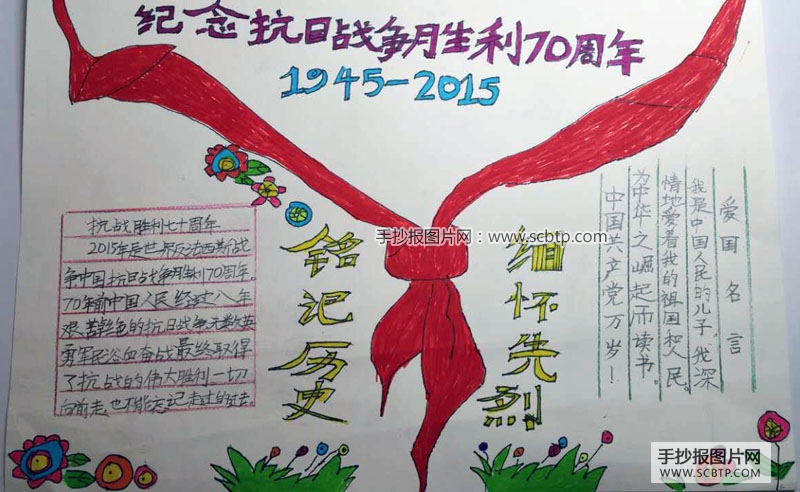 纪念抗日战争胜利70周年
1945-2015
抗战胜利七十周年
2015年是世界反法西斯战
争中国抗日战争胜利70周年。
70年前中国人民经过八年
艰苦绝的抗日战争无数英
勇军民浴血奋战最终取得
了抗战的伟大胜利一切
向前走,也不能忘记走过的过去。
铭记历史
缅怀先烈
爱国名言
我是中国人民的儿子,我深
情地爱着我的祖国和人民。
为中华之崛起而读书。
中国共产党万岁!
手抄报图片网:www.scbtp.com
手抄报图片网
WWW.SCBTP.COM